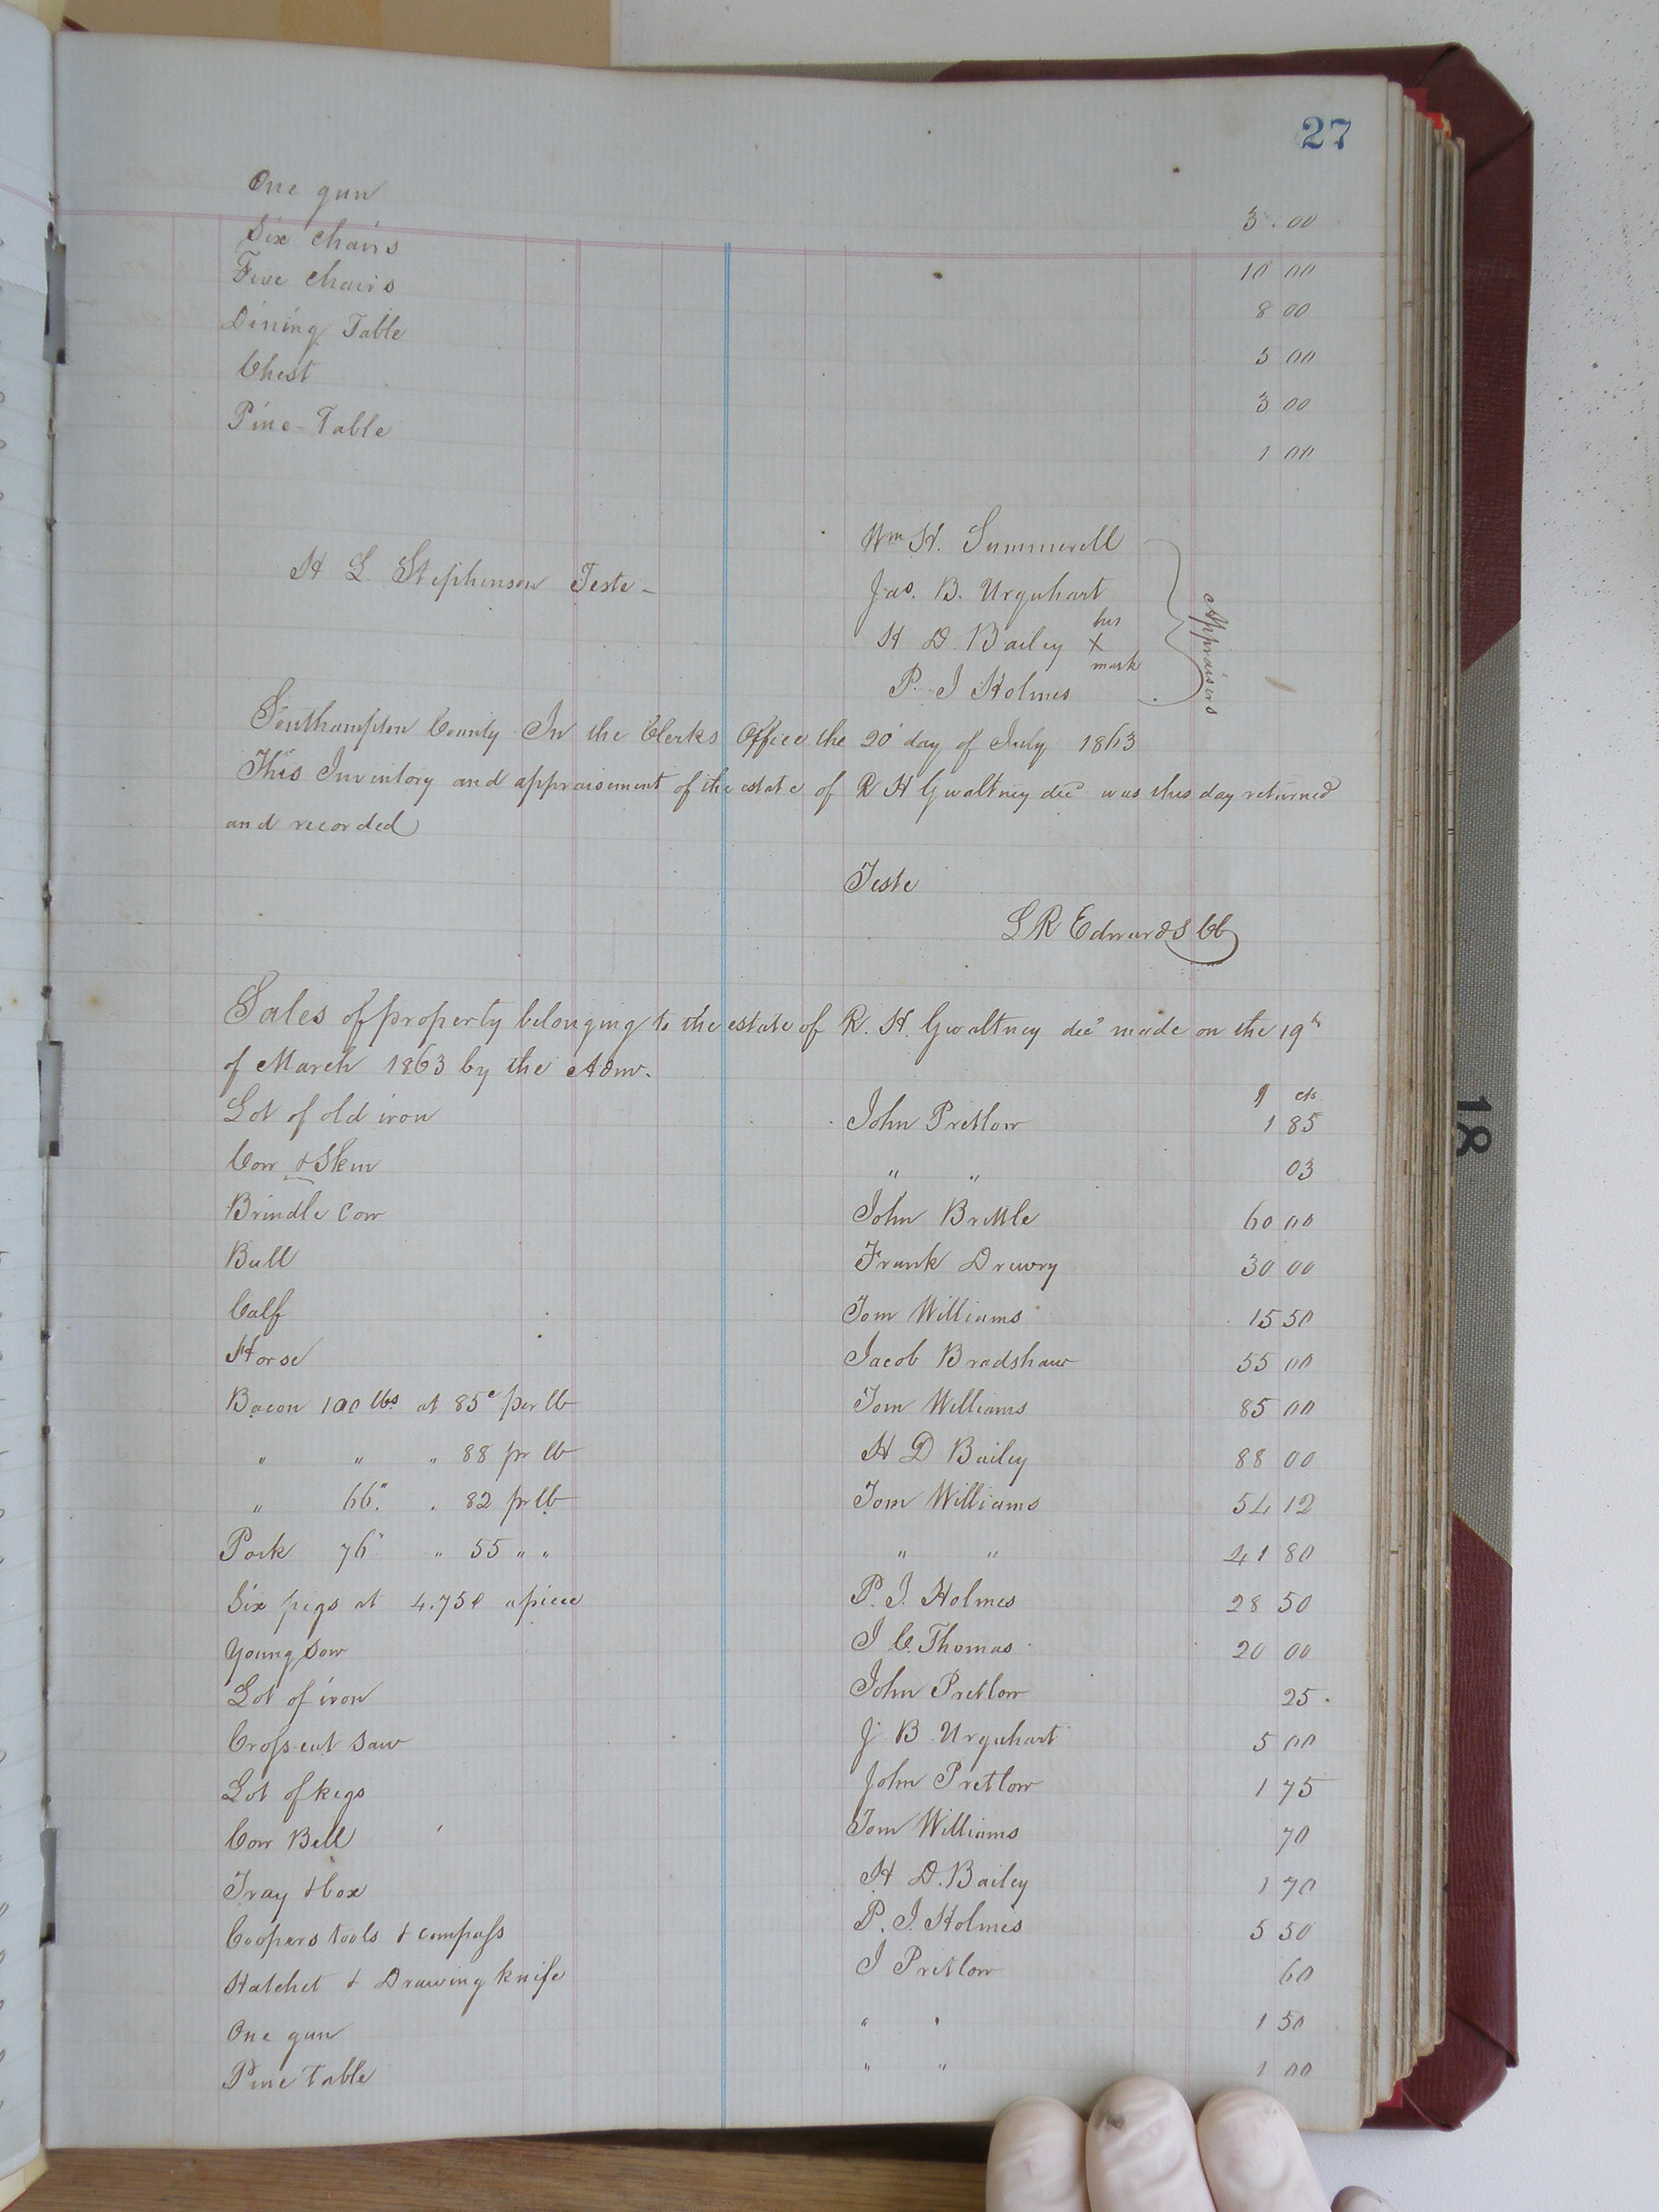 27
One gun 3.00
Six chairs 10 00
Five chairs 8 00
Dining Table 5 00
Chest 3 00
Pine Table 1 00
Wm H. Summerell
H L Stephenson Teste -
Jas. B. Urquhart
H D. Bailey his X mark
P. J Holmes
Appraisers
Southampton County In the Clerks Office the 20 day of July 1863
This Inventory and appraisement of the estate of R H Gwaltney decd was this day returned
and recorded
Teste
L R Edwards CC
Sales of property belonging to the estate of R. H. Gwaltney decd made on the 19th
of March 1863 by the Admr.
$ cts
Lot of old iron John Pretlow 1 85
Cow & Skin " " 03
Brindle Cow John Brittle 60 00
Bull Frank Drewry 30 00
Calf Tom Williams 15 50
Horse Jacob Bradshaw 55 00
Bacon 100 lbs at 85c per lb Tom Williams 85 00
" " " 88 pr lb H D Bailey 88 00
" 66" " 82 pr lb Tom Williams 54 12
Pork 76" " 55 " " " " 41 80
Six pigs at 4.75c apiece P. J. Holmes 28 50
Young Sow J C. Thomas 20 00
Lot of iron John Pretlow 25
Cross cut Saw J B Urquhart 5 00
Lot of kegs John Pretlow 1 75
Cow Bell Tom Williams 70
Tray & box H D. Bailey 1 70
Coopers tools & compass P. J. Holmes 5 50
Hatchet & Drawing knife J Pretlow 60
One gun " " 1 50
Pine Table " " 1 00
18